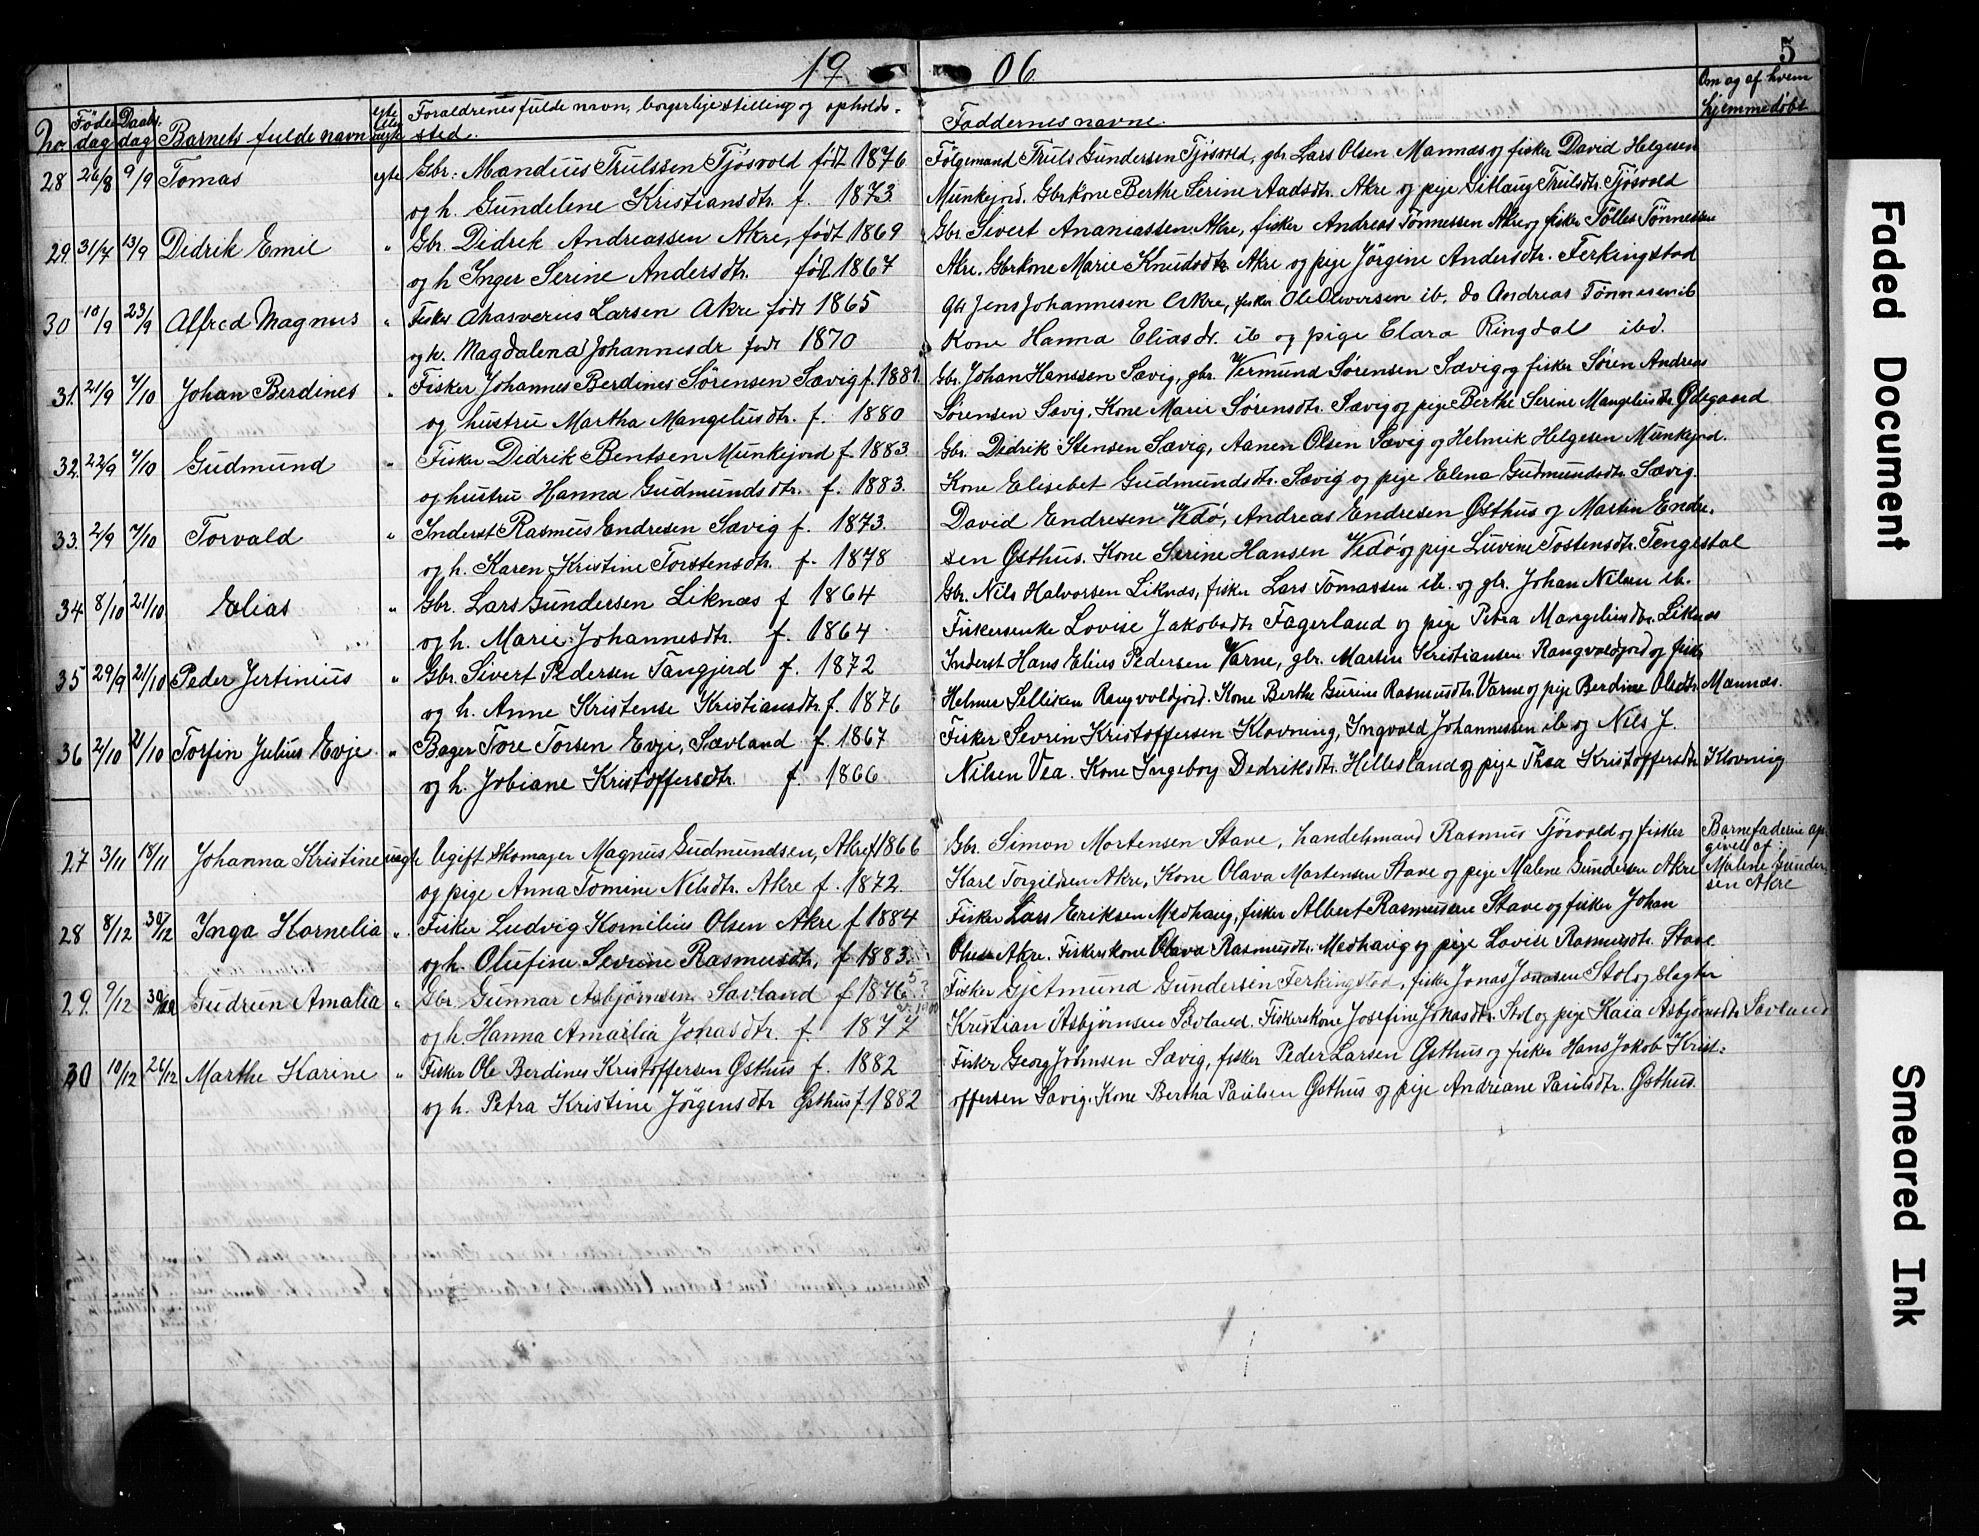 19 06
5
No
Födedag
Daabsdag
Barnets fulde navn
egte eller uegte
Foraldrenes fulde navn, borgerlige stilling og opholdssted.
Faddernes navne.
Om og af hvem hjemmedöbt
28 26/8 9/9 Tomas egte Gbr. Mandius Trulssen Tjösvold född 1876 Fölgemand Truls Gundersen Tjösvold, gbr. Lars Olsen Mannæs og fisker David Helgesen
og h. Gundelene Kristiansdtr. f. 1873. Munkejord. Gbrkone Berthe Serine Aadsdtr. Akre og pige Gitlaug Trulsdtr. Tjösvold
29. 31/7 13/9 Didrik Emil " Gbr. Didrik Andreassen Akre, født 1869 Gbr. Sivert Ananiassen Akre, fisker Andreas Tönnessen Akre og fisker Tölles Tönnessen
og h Inger Serine Andersdtr. født 1867 Akre. Gbrkone Marie Knudsdtr. Akre og pige Jörgine Andersdtr. Ferkingstad
30 10/9 23/9 Alfred Magnus " Fisker Ahasverus Larsen Akre född 1865 Gbr Jens Johannesen Akre, fisker Ole Oliversen ib. do Andreas Tönnesen ib
og h. Magdalena Johannesdr födt 1870 Kone Hanna Eliasdr. ib og pige Elara Ringdal ibd.
31. 21/9 7/10 Johan Berdines " Fisker Johannes Berdines Sörensen Sævig f. 1881. Gbr. Johan Hanssen Sævig, gbr. Vermund Sørensen Sævig og fisker Søren Andreas
og hustru Martha Mangelusdtr. f. 1880 Sørensen Sævig. Kone Marie Sørensdtr. Sævig og pige Berthe Serine Mangelusdtr. Ødegaard
32. 22/9 7/10 Gudmund " Fisker Didrik Bentsen Munkejord f. 1883. Gbr. Didrik Stensen Sævig, Aanen Olsen Sævig og Helmik Helgesen Munkejord.
og hustru Hanna Gudmundsdtr. f. 1883. Kone Elisebet Gudmundsdtr. Sævig og pige Elena Gudmundsdtr. Sævig.
33. 2/9 7/10 Torvald " Inderst Rasmus Endresen Sævig f. 1873. David Endresen Vedø, Andreas Endresen Østhus og Martin Endre-
og h. Karen Kristine Torstensdtr. f. 1878 sen Østhus. Kone Serine Hansen Vedø og pige Luvine Tostensdtr. Tengesdal
34 8/10 21/10 Elias " Gbr. Lars Gundersen Liknæs f 1864 Gbr. Nils Halvorsen Liknæs, fisker Lars Tomassen ib. og gbr. Johan Nilsen ib.
og h. Marie Johannesdtr. f. 1864 Fiskerenke Lovise Jakobsdtr Fagerland og pige Petra Mangelusdtr. Liknæs
35 29/9 21/10 Peder Jertinius " Gbr. Sivert Pedersen Tangjerd f. 1872 Inderst Hans Elius Pedersen Varne, gbr. Martin Kristiansen Rangvoldjord og fisker
og h. Anne Kristense Kristiansdtr. f. 1876 Helmer Selliken Rangvoldjord. Kone Berthe Gurine Rasmusdtr. Varne og pige Berdine Olsdtr. Mannæs.
36 2/10 21/10 Torfin Julius Evje " Bager Tore Torsen Evje, Sævland f. 1867 Fisker Sevrin Kristoffersen Klovning, Ingvald Johannessen ib og Nils J.
og h. Jobiane Kristoffersdtr. f. 1866 Nilsen Vea. Kone Ingeborg Dedriksdtr. Hillesland og pige Thea Kristoffersdtr. Klovning
27 3/11 18/11 Johanna Kristine uegte Ugift Skomager Magnus Gudmundsen, Akre f. 1866 Gbr. Simon Mortensen Stave, handelsmand Rasmus Tjösvold og fisker Barnefaderen opgivet af:
og pige Anna Tomine Nilsdtr. Akre f. 1872. Karl Torgildsen Akre, Kone Olava Mortensen Stave og pige Malene Gundersen Akre Malene Gundersen Akre
28 8/12 30/12 Inga Kornelia " Fisker Ludvig Kornilius Olsen Akre f 1884 Fisker Lars Eriksen Medhaug, fisker Albert Rasmussen Stave og fisker Johan
og h. Olufine Severine Rasmusdtr. f 1883. Olsen Akre. Fiskerkone Olava Rasmusdtr. Medhaug og pige Lovise Rasmusdtr. Stave
29. 9/12 30/12 Gudrun Amalia " Gbr. Gunnar Asbjørnsen Sævland f 1876 Fisker Gjetmund Gundersen Ferkingstad, fisker Jonas Jonassen Stol og slagter
og h. Hanna Amailia Jonasdtr. f. 1877 Kristian Asbjørnsen Sævland. Fiskerskone Josefine Jonasdtr. Stol og pige Kaia Asbjørnsdtr Sævland
30 10/12 26/12 Marthe Karine " Fisker Ole Berdines Kristoffersen Østhus f. 1882 Fisker Georg Johnsen Sævig, fisker Peder Larsen Østhus og fisker Hans Jakob Krist-
og h. Petra Kristine Jörgensdtr Østhus f. 1882 offersen Sævig. Kone Bertha Paulsen Østhus og pige Andriane Paulsdtr. Østhus.
Faded Document
Smeared Ink